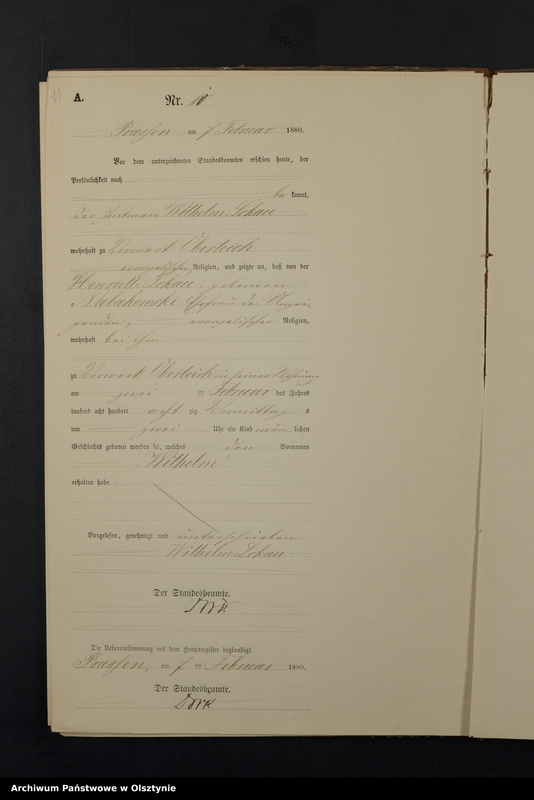 11
A.
Nr. 10
Prassen am 7 Februar 1880.
Vor dem unterzeichneten Standesbeamten erschien heute, der
Persönlichkeit nach
be kannt,
der Instmann Wilhelm Lokau
wohnhaft zu Vorwerk Oberteich
evangelischer Religion, und zeigte an, daß von der
Henriette Lokau, geborenen
Nabakowski Ehefrau des Anzei
genden, evangelischer Religion,
wohnhaft bei ihm
zu Vorwerk Oberteich in seiner Wohnung
am zwei ten Februar des Jahres
tausend acht hundert acht zig Vormittag s
um zwei Uhr ein Kind män lichen
Geschlechts geboren worden sei, welches den Vornamen
Wilhelm
erhalten habe.
Vorgelesen, genehmigt und unterschrieben
Wilhelm Lokau
Der Standesbeamte.
Die Uebereinstimmung mit dem Hauptregister beglaubigt.
Prassen, am 7 ten Februar 1880.
Der Standesbeamte.
Archiwum Państwowe w Olsztynie